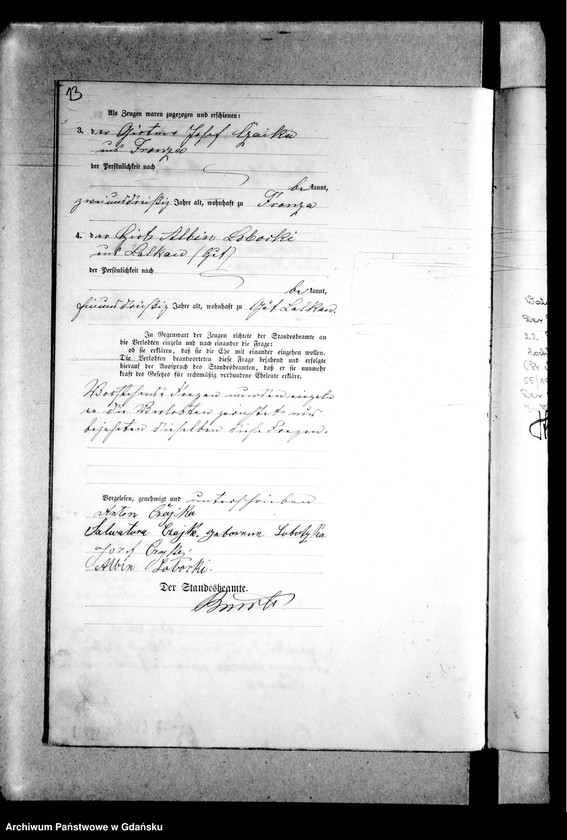 13
Als Zeugen waren zugezogen und erschienen:
3. der Gärtner Josef Czaika
aus Fronza
der Persönlichkeit nach
bekannt,
zweiunddreißig Jahre alt, wohnhaft zu Fronza
4. der Hirt Albin Lobocki
aus Lalkau (Gut)
der Persönlichkeit nach
bekannt,
Jahre alt, wohnhaft zu Gut Lalkau.
In Gegenwart der Zeugen richtete der Standesbeamte an
die Verlobten einzeln und nach einander die Frage:
ob sie erklären, daß sie die Ehe mit einander eingehen wollen.
Die Verlobten beantworteten diese Frage bejahend und erfolgte
hierauf der Ausspruch des Standesbeamten, daß er sie nunmehr
kraft des Gesetzes für rechtmäßig verbundene Eheleute erkläre.
Vorstehende Fragen wurden einzeln
an die Verlobten gerichtet und
bejahten dieselben diese Fragen.
Vorgelesen, genehmigt und unterschrieben
Anton Czajka
Salwatora Czajka geborene
Josef
Albin Lobocki.
Der Standesbeamte.
Archiwum Państwowe w Gdańsku